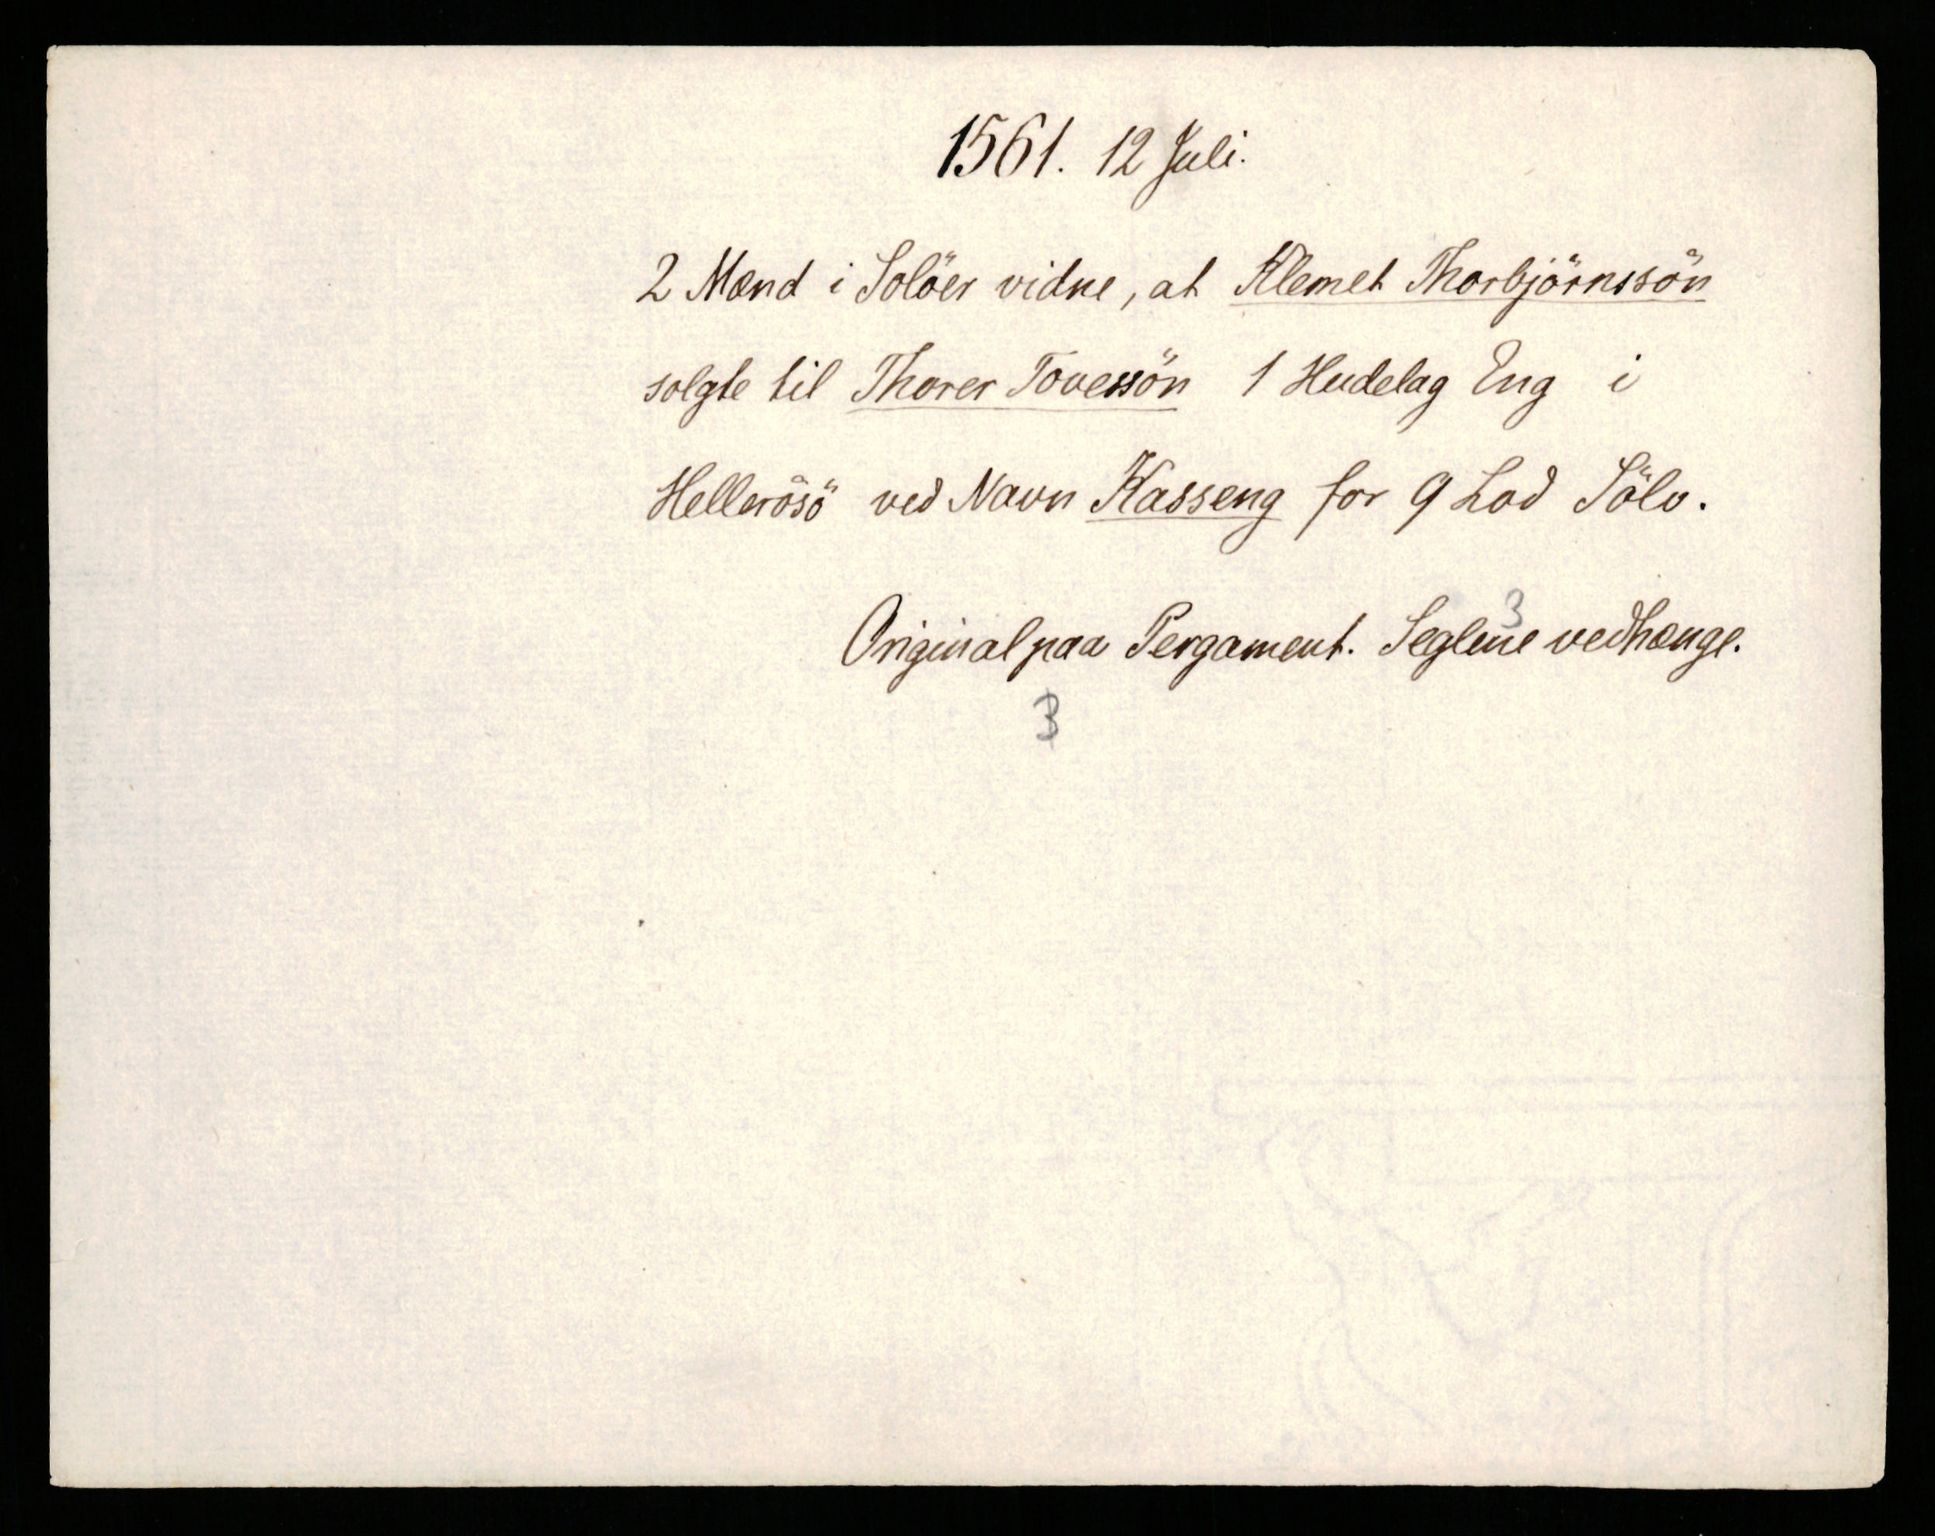 1561. 12 Juli.
2 Mænd i Solöer vidne, at Klemet Thorbjörnssön
solgte til Thorer Tovessön 1 Hudelag Eng i
Hellerösö ved Navn Kasseng for 9 Lod Sölv.
3
Original paa Pergament. Seglene vedhænge.
3